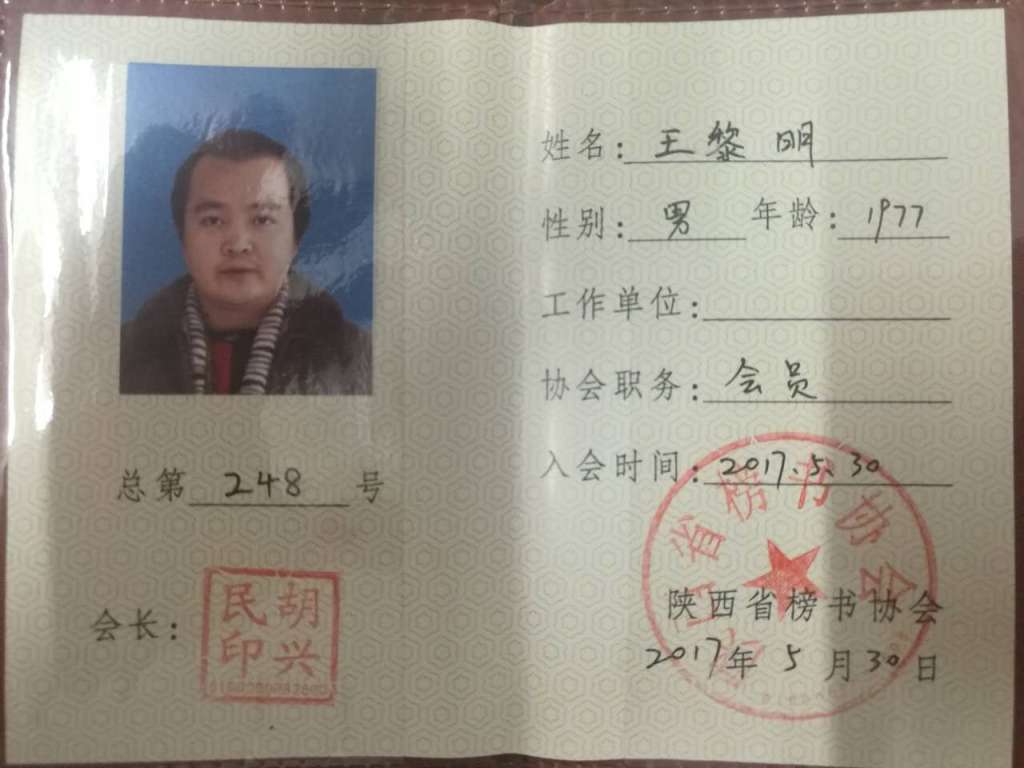 总第 248 号
会长：
胡兴民印
姓名：王黎明
性别：男 年龄：1977
工作单位：
协会职务：会员
入会时间：2017.5.30
陕西省榜书协会
陕西省榜书协会
2017年 5 月 30 日